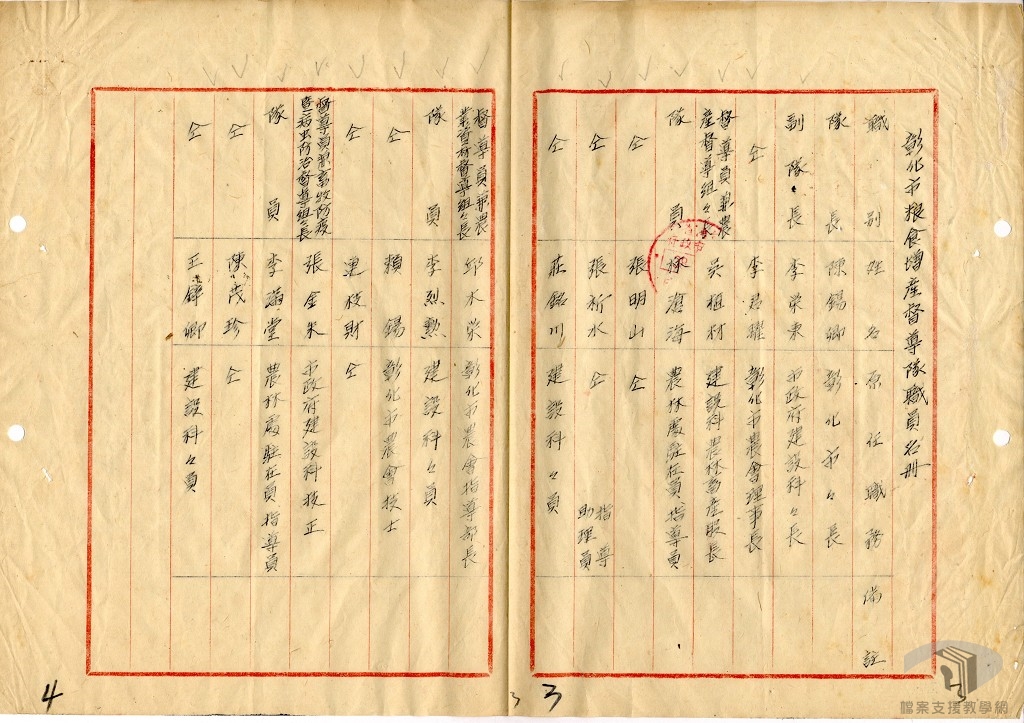 彰化市粮食增產督導隊職員名冊
職別 姓名 原任職務 備註
隊長 陳錫卿 彰化市々長
副隊長 李榮東 市政府建設科々長
仝 李君曜 彰化市農會理事長
督導員兼農產督導組々長 吳植材 建設科農林畜產股長
隊員 滄海 農林處駐在員指導員
仝 張明山 仝
仝 張新水 仝 指導助理員
仝 莊銘川 建設科々員
督導員兼農業資材督導組々長 邱水榮 彰化市農會指導部長
隊員 李烈勲 建設科々員
仝 賴錫 彰化市農會技士
仝 枝財 仝
督導員兼畜牧防疫暨病虫防治督導組々長 張金米 市政府建設科技正
隊員 李滿堂 農林處駐在員指導員
仝 陳茂珍 仝
仝 王錦卿 建設科々員
3
3
4
檔案支援教學網